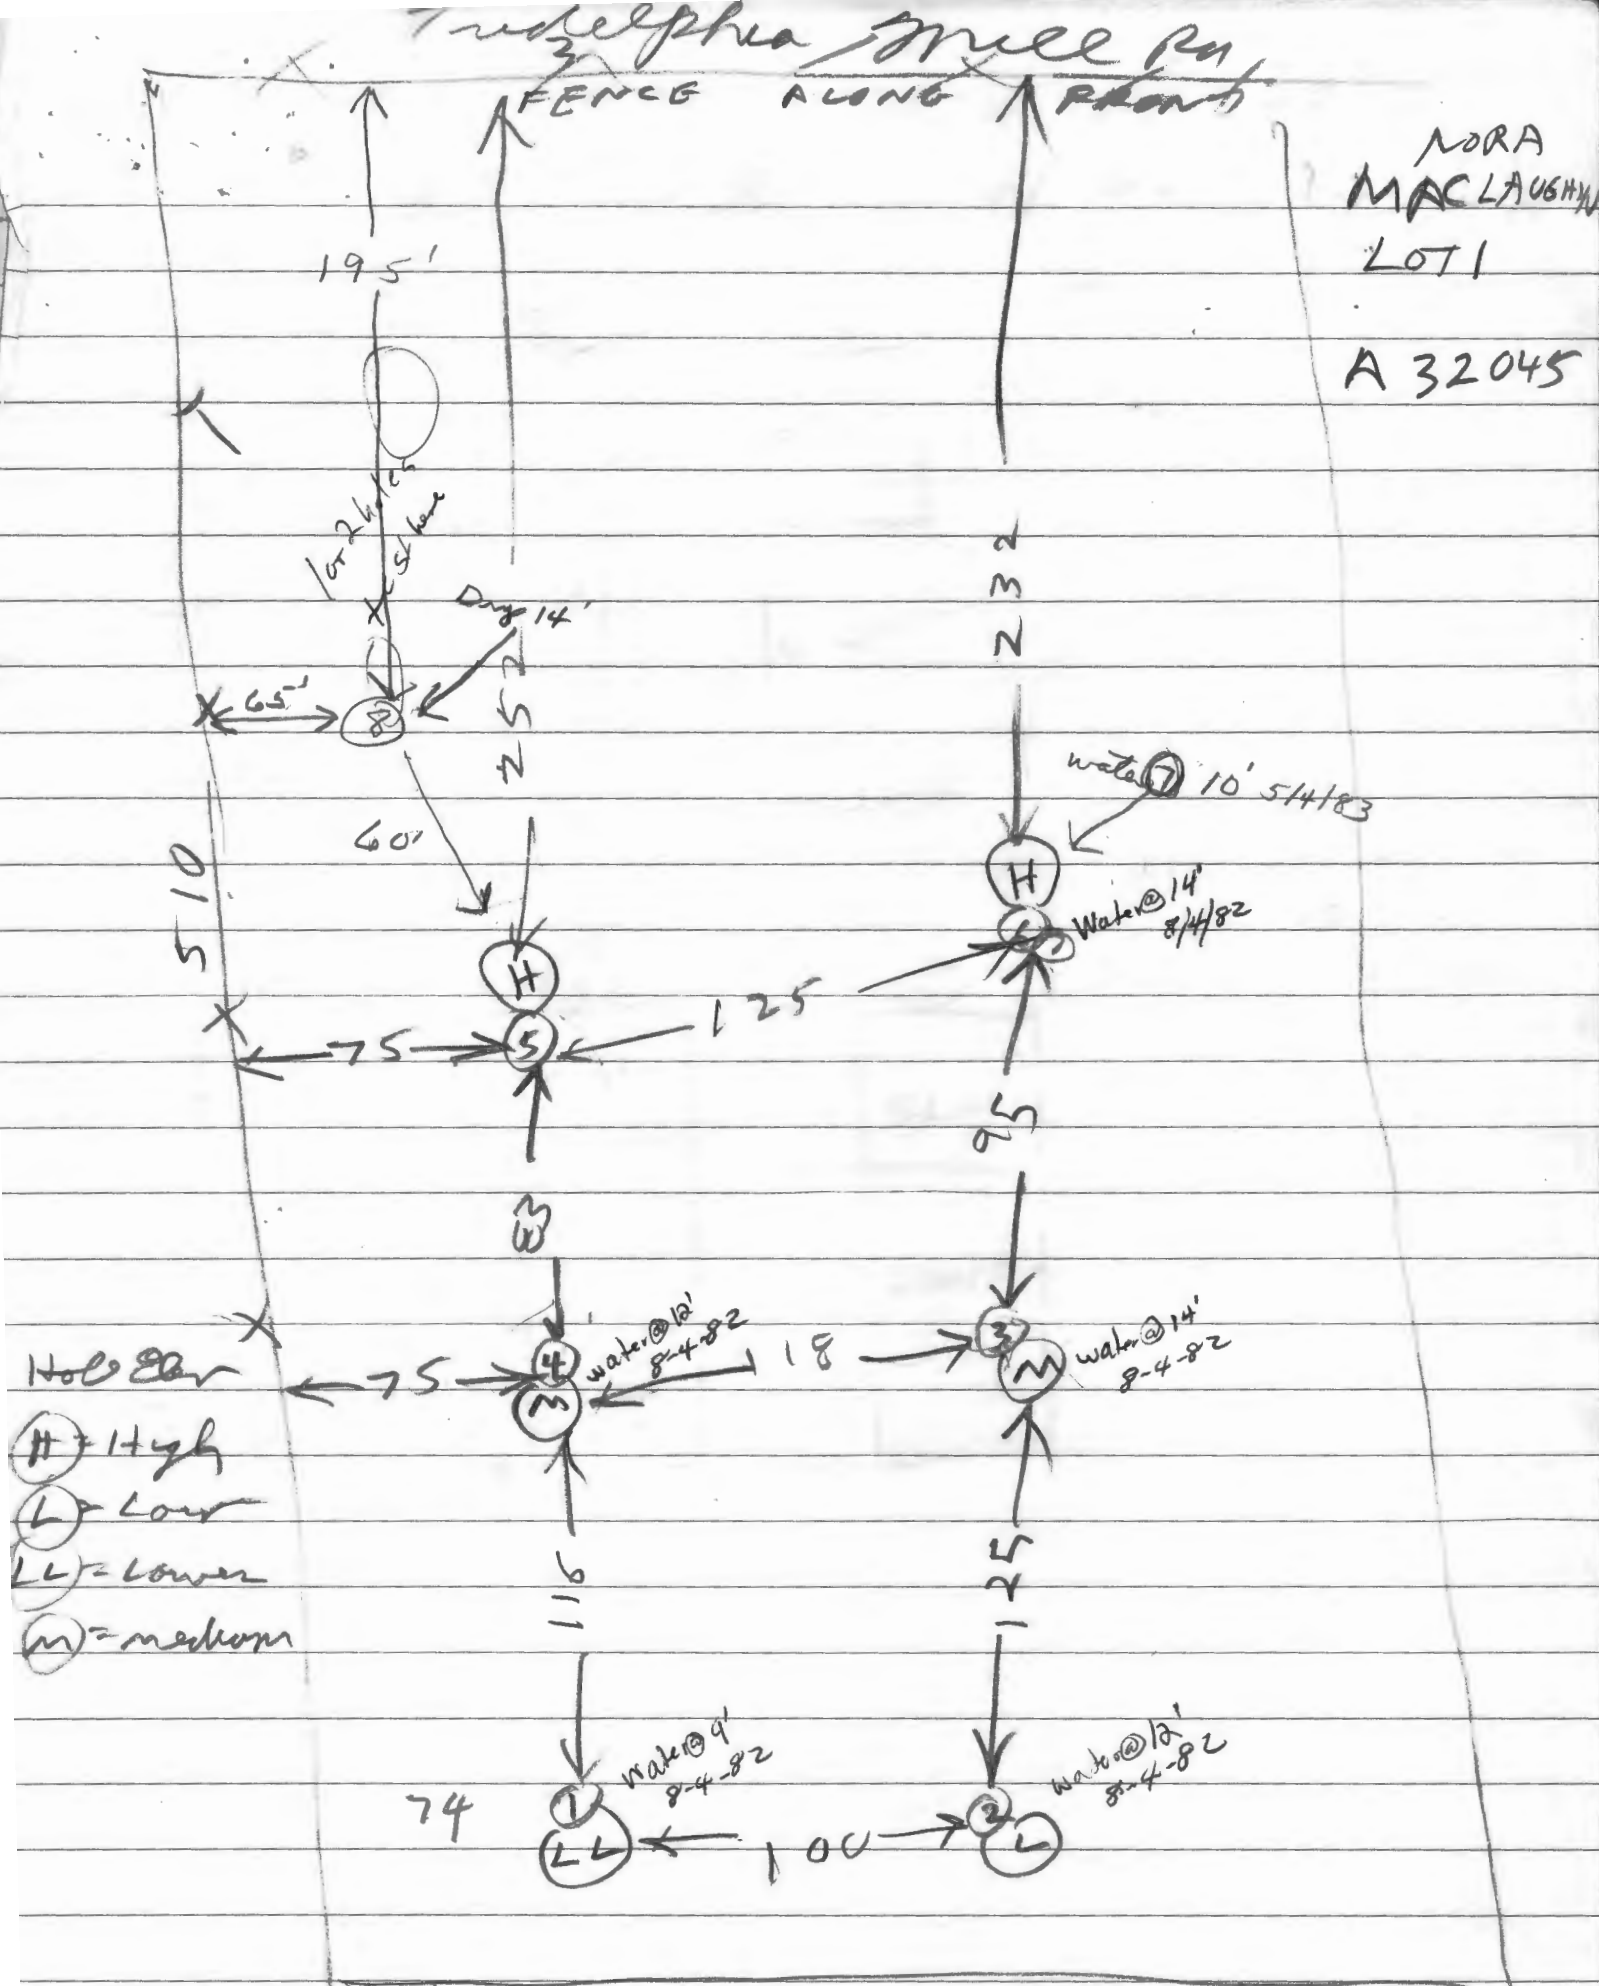 Tridelphia Mill Rd
FENCE ALONG FRONT
NORA
MACLAUGHLIN
LOT 1
A 32045
195'
1 or 2 holes
test here
Dry 14'
252
232
65'
8
water 7 10' 5/4/83
60'
H
510
H
6
Water@14'
8/4/82
75
5
125
95
83
4
water@12'
8-4-82
118
3
M
water@14'
8-4-82
75
M
Hole Elev
H = High
L = Low
LL = Lower
M = medium
116
125
74
1
Water@9'
8-4-82
LL
100
2
L
water@12'
8-4-82